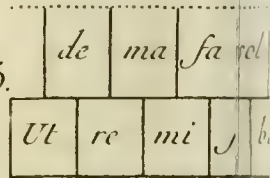 de ma fa sol
Ut re mi